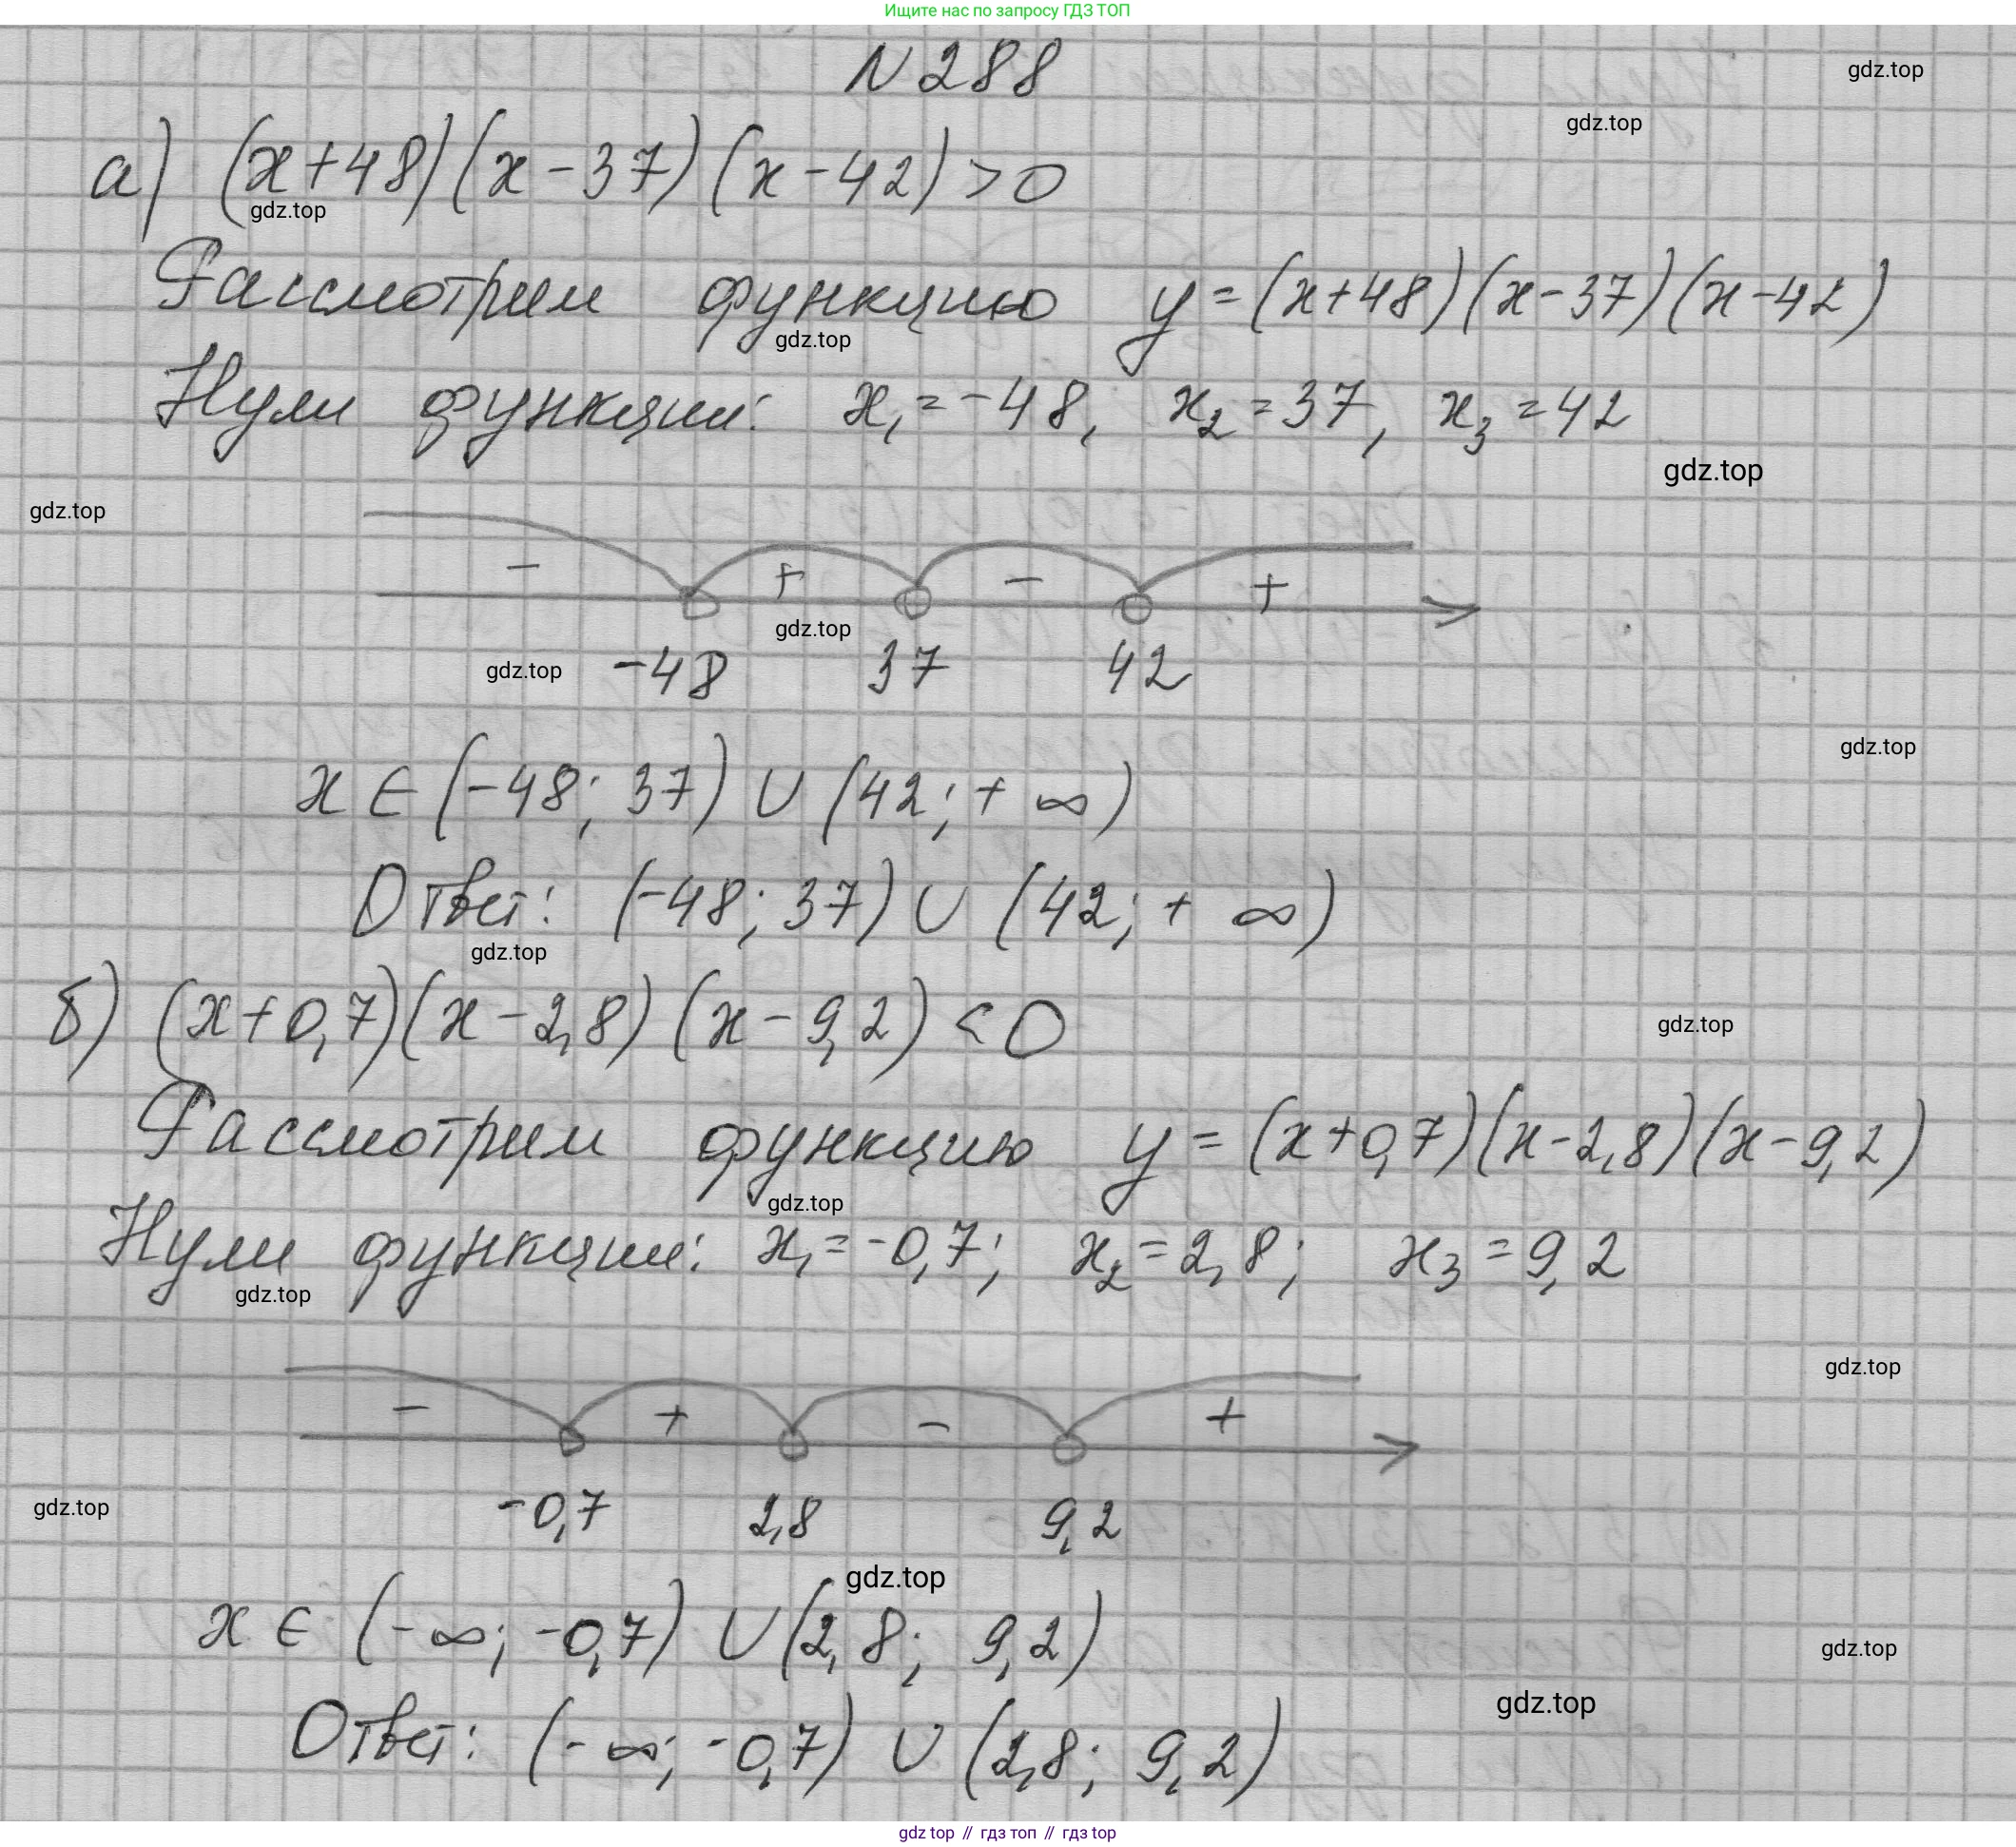 Ищите нас по запросу ГДЗ ТОП
N 288
gdz.top
gdz.top
а) (x+48)(x-37)(x-42)>0
gdz.top
Рассмотрим функцию y=(x+48)(x-37)(x-42)
gdz.top
Нули функции: x₁=-48, x₂=37, x₃=42
gdz.top
gdz.top
- + - +
gdz.top
gdz.top
-48 37 42
gdz.top
x ∈ (-48; 37) ∪ (42; + ∞)
Ответ: (-48; 37) ∪ (42; + ∞)
gdz.top
б) (x+0,7)(x-2,8)(x-9,2)<0
gdz.top
Рассмотрим функцию y=(x+0,7)(x-2,8)(x-9,2)
gdz.top
Нули функции: x₁=-0,7; x₂=2,8; x₃=9,2
gdz.top
gdz.top
- + - +
-0,7 2,8 9,2
gdz.top
gdz.top
x ∈ (-∞; -0,7) ∪ (2,8; 9,2)
gdz.top
gdz.top
Ответ: (-∞; -0,7) ∪ (2,8; 9,2)
gdz top // гдз топ // гдз top